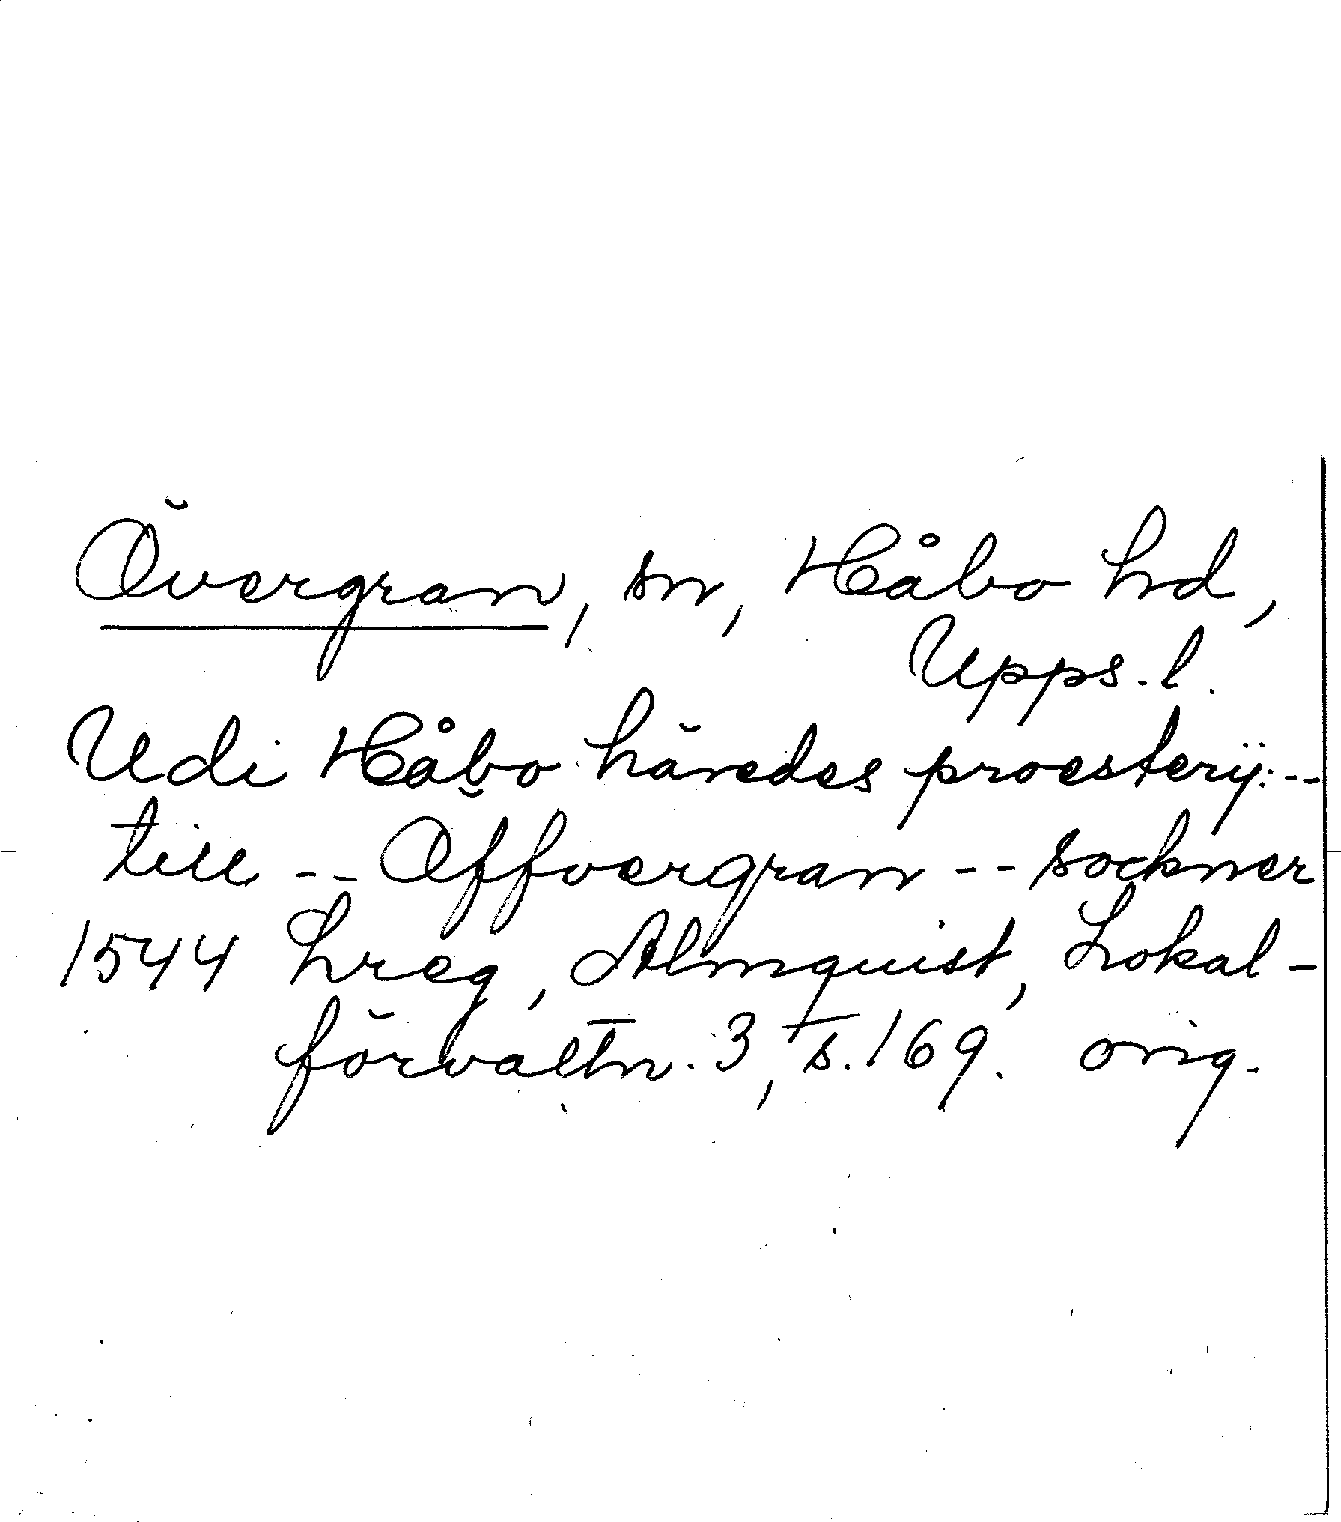 Övergran, sn, Håbo hd,
Upps. l.
Udi Håbo häredes proesterij: --
till -- Öffvergran -- sockner
1544 hreg, Almquist, Lokal-
förvaltn. 3, s. 169. orig.